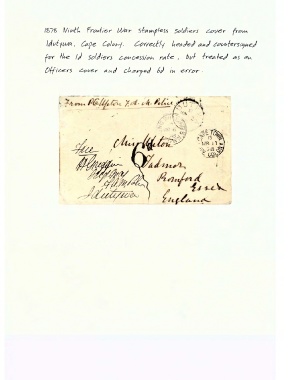 1878 Ninth Frontier War stampless soldiers cover from
Idutywa, Cape Colony. Correctly headed and countersigned
for the 1d soldiers concession rate, but treated as an
Officers cover and charged 6d in error.
From Pte Upton F.A.M. Police
Miss Upton
6
Romford
Essex
England